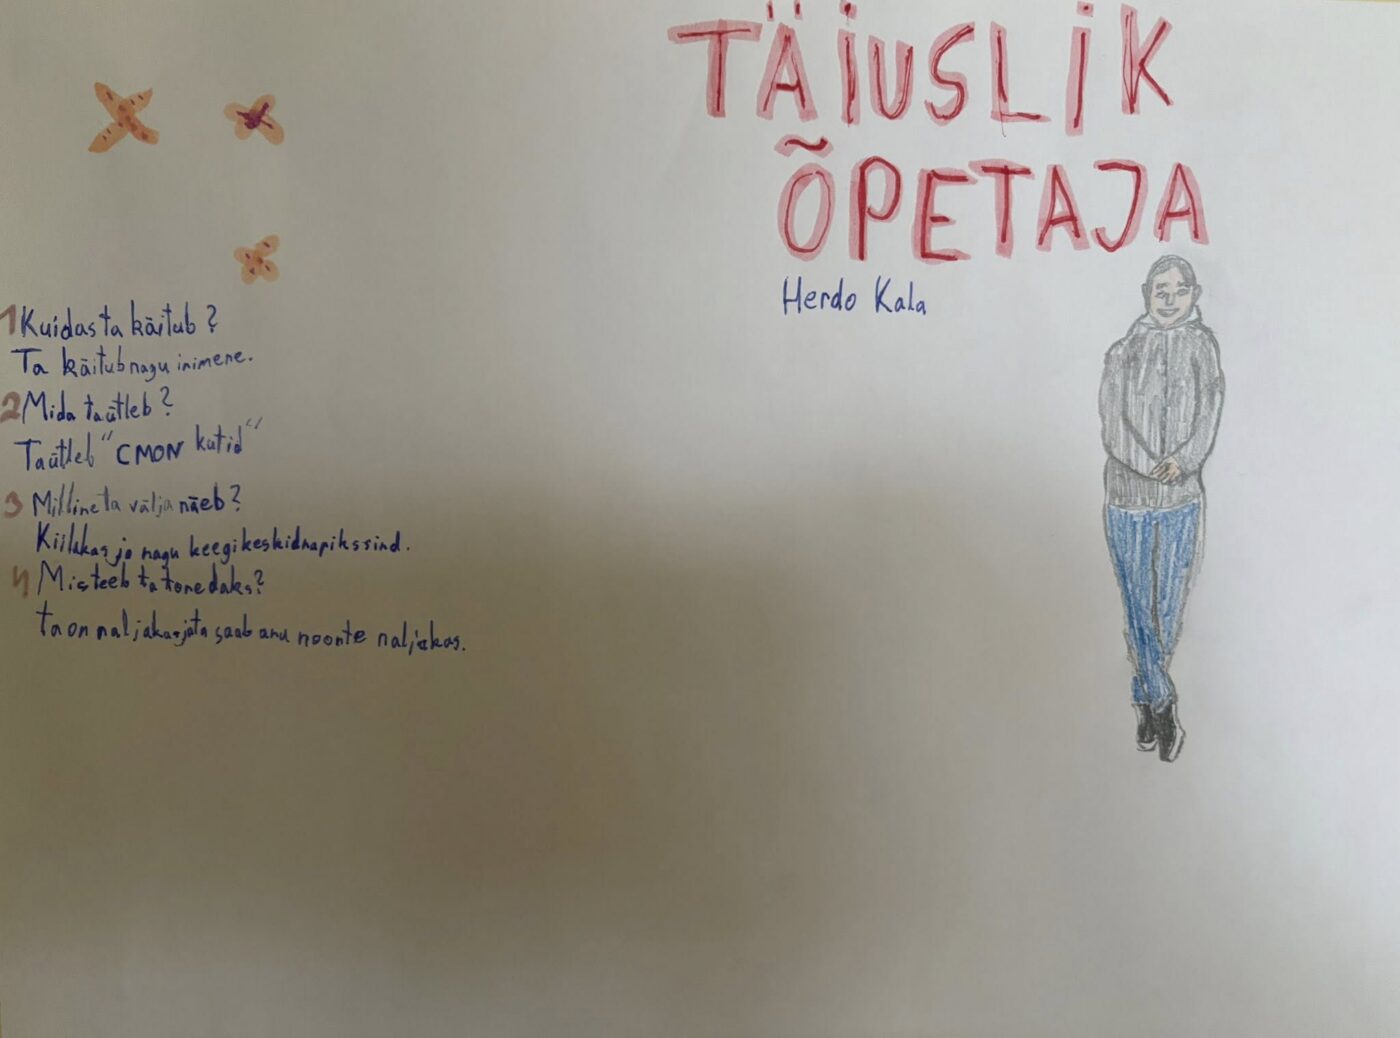 TÄIUSLIK
ÕPETAJA
Herdo Kala
1 Kuidas ta käitub?
Ta käitub nagu inimene.
2 Mida ta ütleb?
Ta ütleb "CMON kutid"
3 Milline ta välja näeb?
Kiilakas ja nagu keegi keskidnapiks sind.
4 Mis teeb ta toredaks?
ta on naljakas ja ta saab anu noonte naljakas.